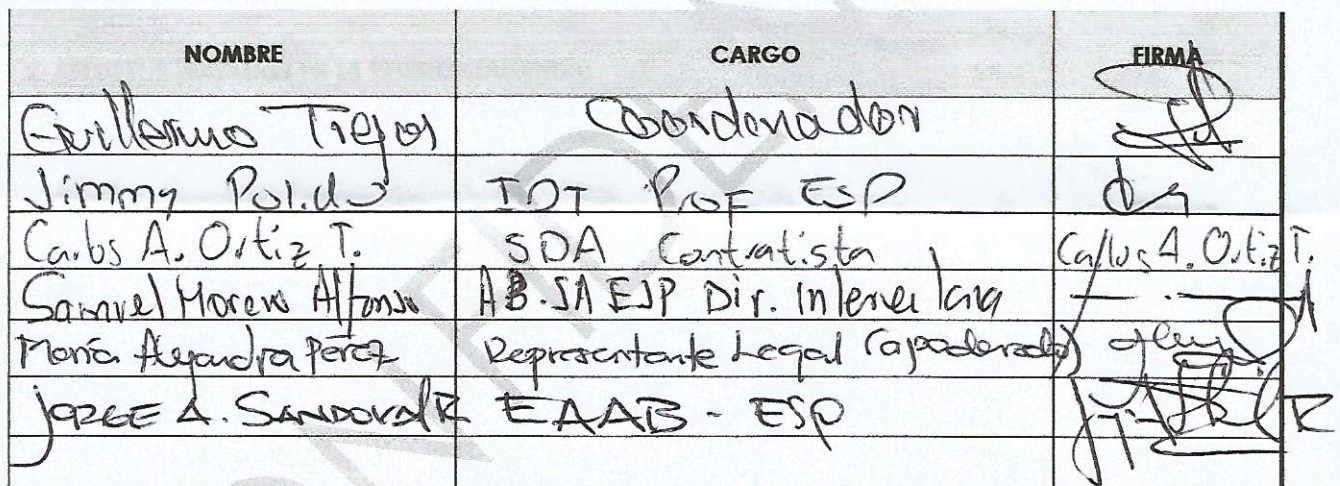 NOMBRE CARGO FIRMA
Guillermo Coordonador
Jimmy Polido IDT Prof ESP
Carlos A. Ortiz T. SDA Contratista Carlos A. Ortiz T.
Samuel Moreno Alfonso AB.SA ESP Dir.
María Alejandra Pérez Representante Legal (apoderada)
JORGE A. SANDOVAL R EAAB - ESP